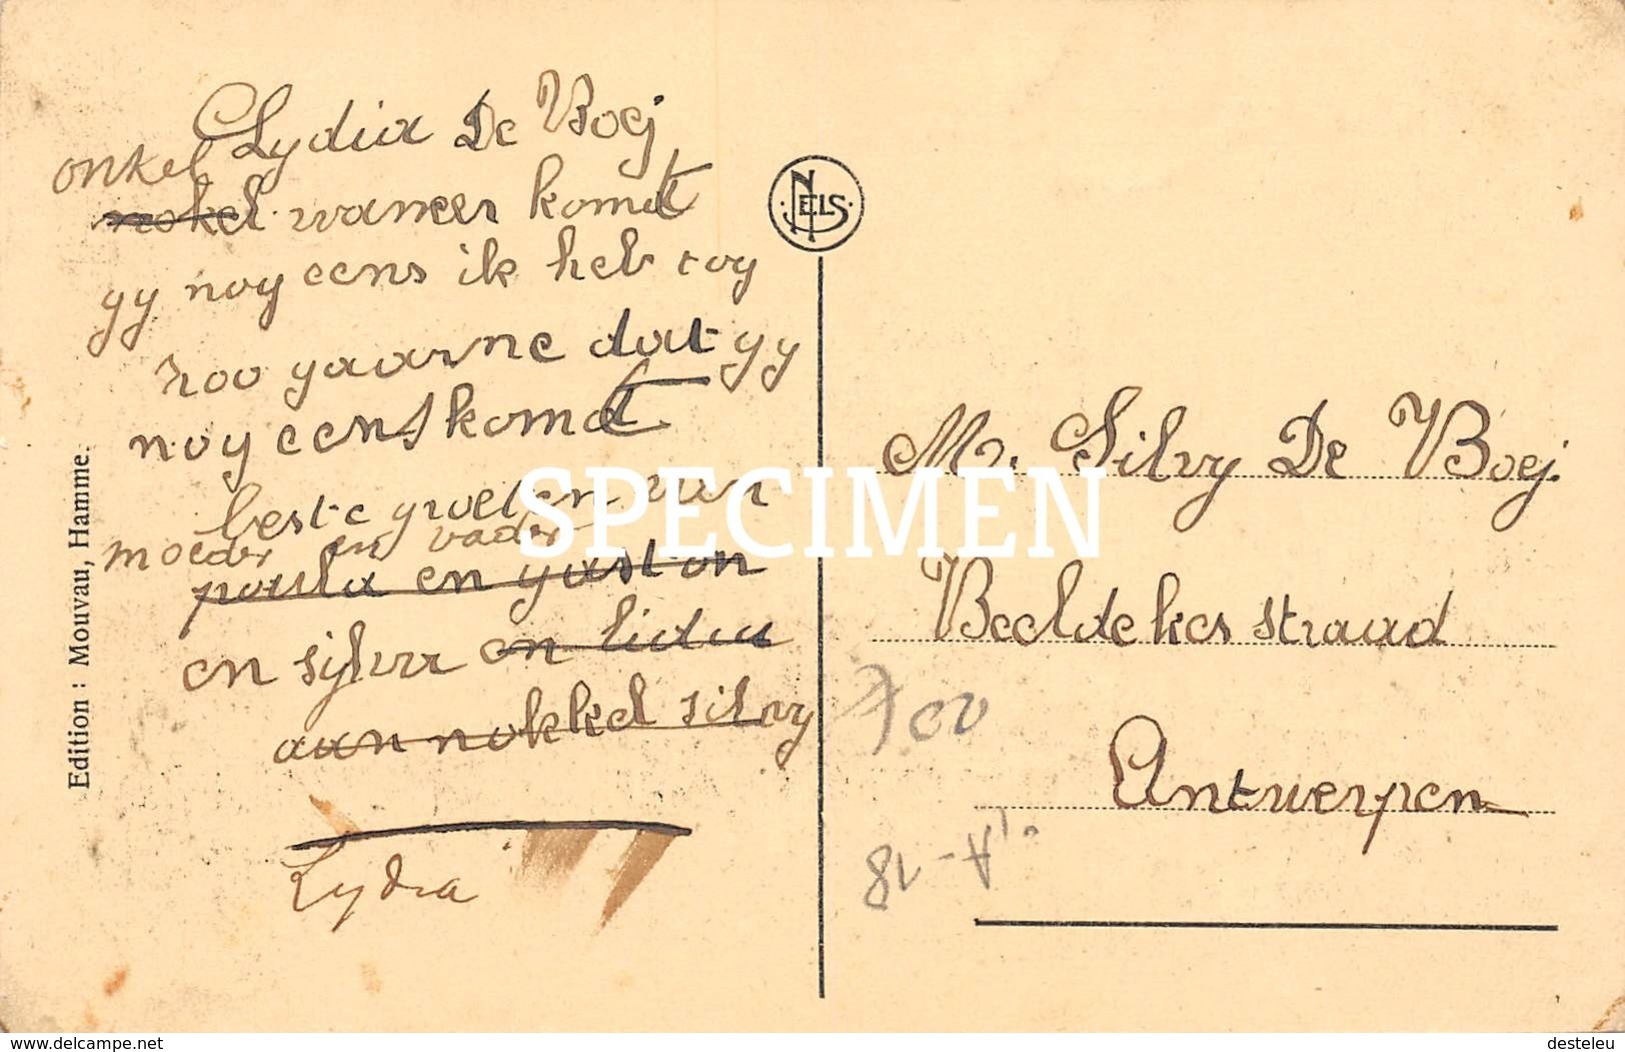 Lydia De Boej
onkel
nokel waneer komdt
gy noy eens ik heb toy
zoo gaarne dat gy
noy eens komdt
beste groeten van
moeder en vader
poula en gaston
en sylvr en lidia
aan nokkel silvy
Lydia
Edition : Mouvau, Hamme.
NELS
SPECIMEN
Mr. Silvy De Boej.
Beeldekesstraad
Antwerpen
www.delcampe.net
desteleu